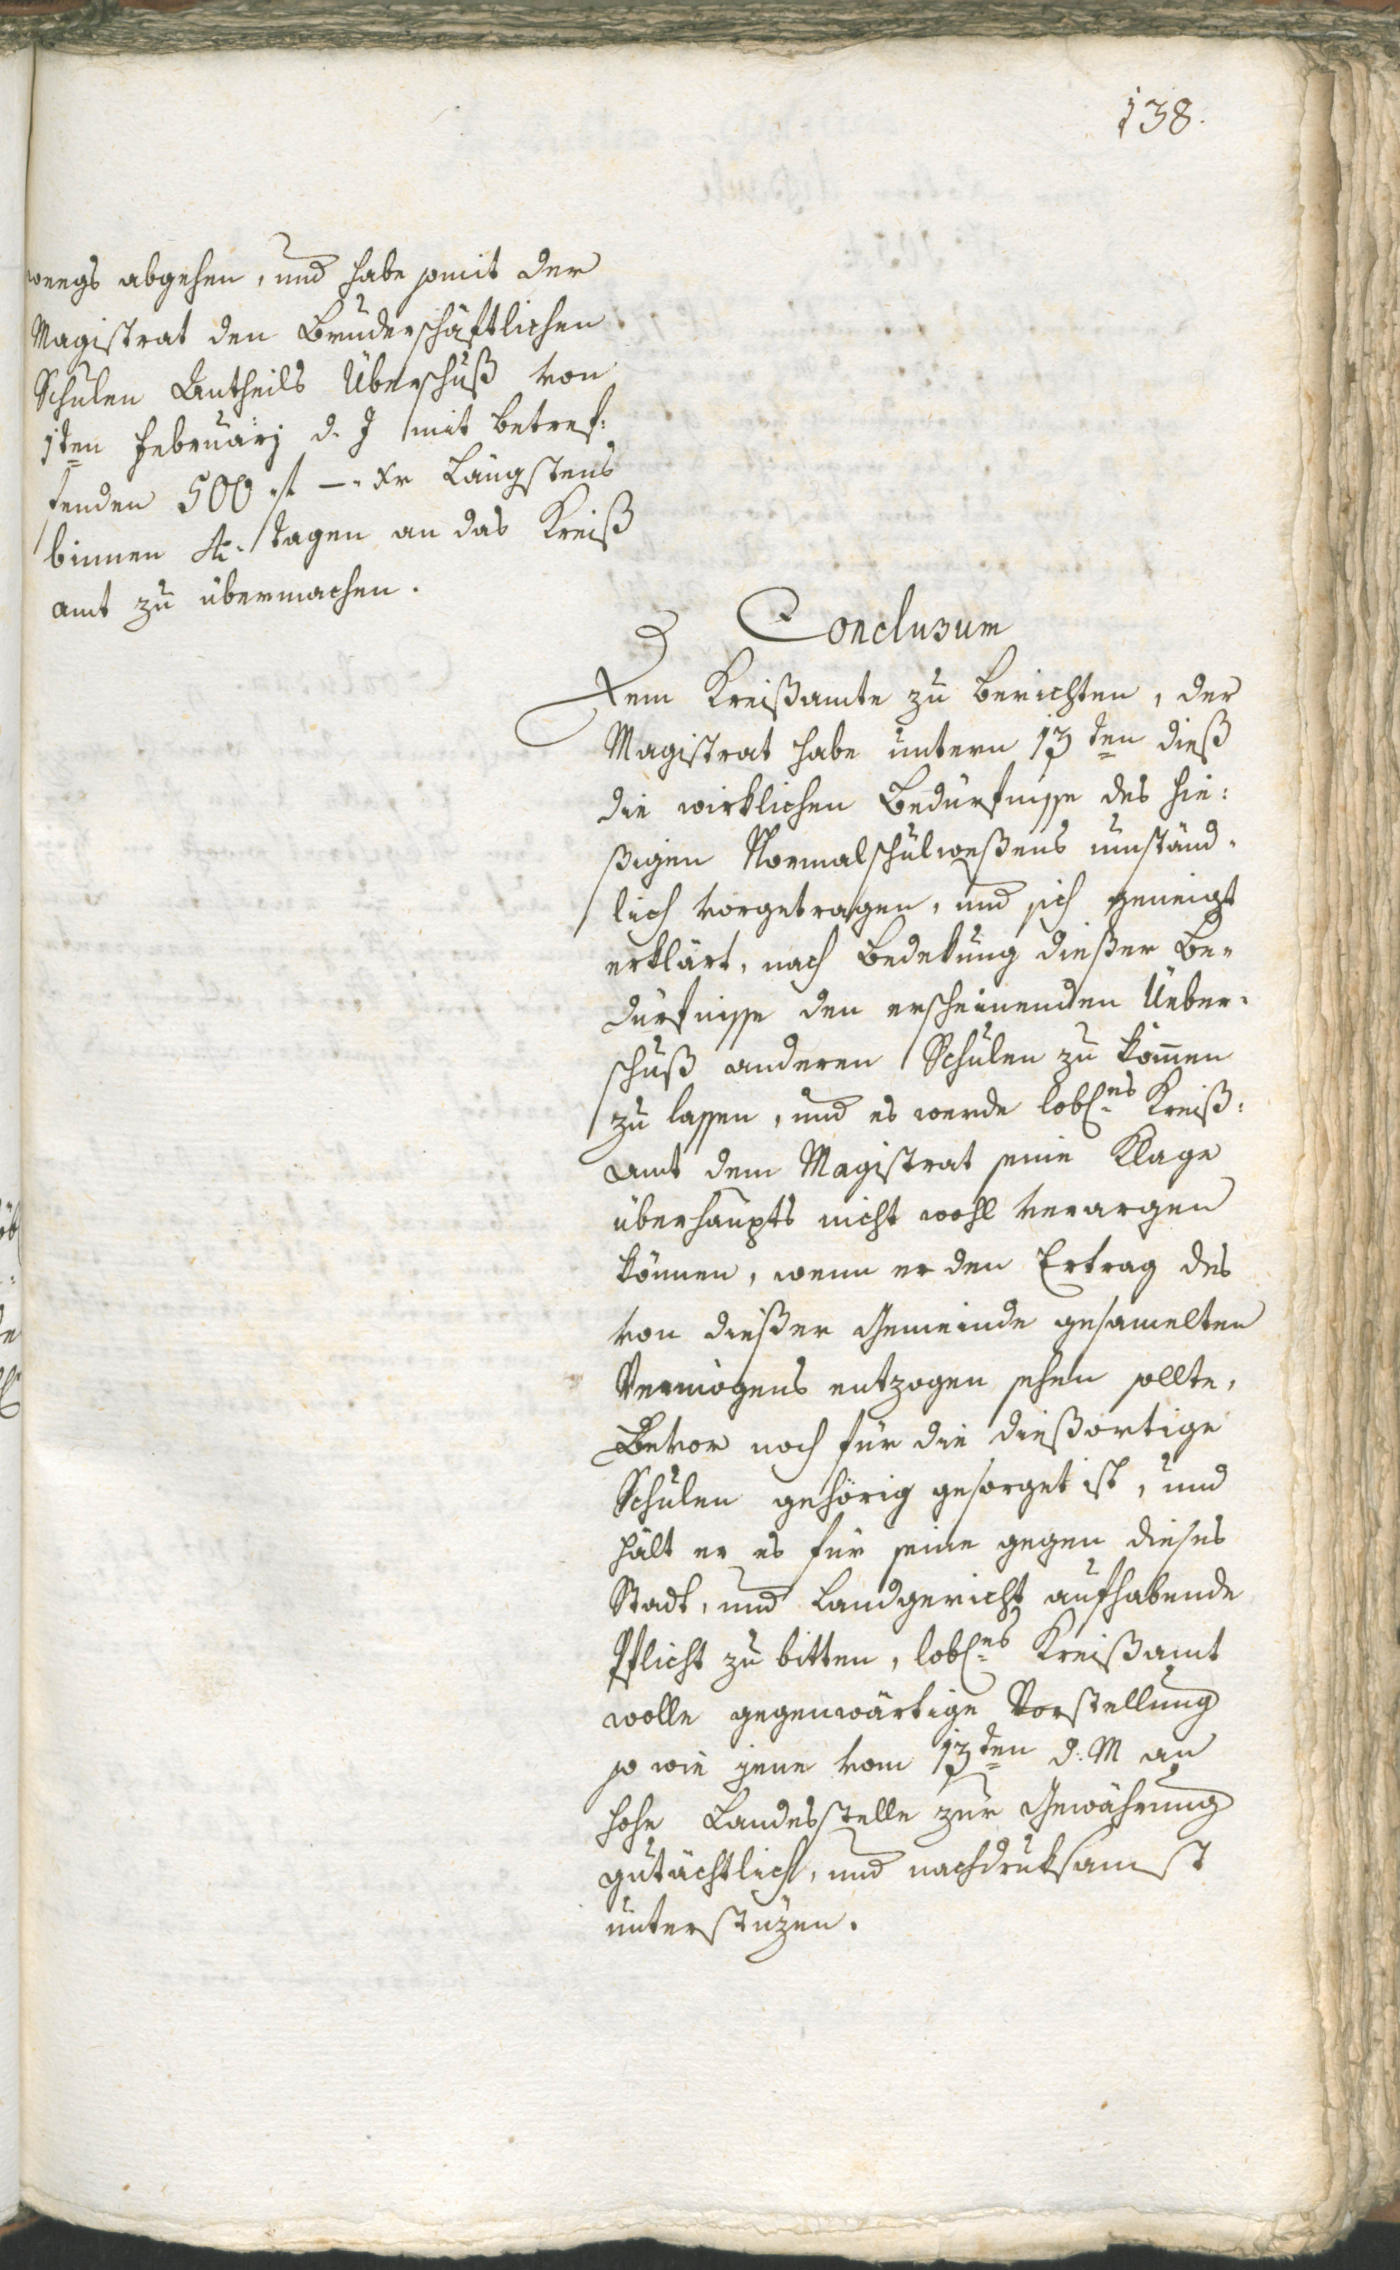 138.
weegs abgehen, und habe somit der
Magistrat den Bruderschäftlichen
Schulen Antheils Überschuß von
1ten Februarj d. J mit betref:
fenden 500 f –. xr Längstens
binnen 4. tagen an das Kreiß
amt zu übermachen.
Conclusum
Dem Kreißamte zu berichten, der
Magistrat habe untern 13ten dieß
die wirklichen Bedürfnisse des hie:
ßigen Normalschulweßens umständ-
lich vorgetragen, und sich geneigt
erklärt, nach Bedekung dießer Be-
dürfnisse den erscheinenden Ueber-
schuß anderen Schulen zu kom̄en
zu lassen, und es werde lobl.es Kreiß:
amt dem Magistrat seine Klage
überhaupts nicht wohl verargen
können, wenn er den Ertrag des
von dießer Gemeinde gesamelten
Vermögens entzogen sehen sollte,
Bevor noch für die dießortige
Schulen gehörig gesorget ist, und
hält er es für seine gegen dieses
Stadt, und Landgericht aufhabende
Pflicht zu bitten, lobl.es Kreißamt
wolle gegenwärtige Vorstellung
so wie jene vom 13ten d: M an
hohe Landesstelle zur Gewährung
gutächtlich, und nachdruksamst
unterstüzen.